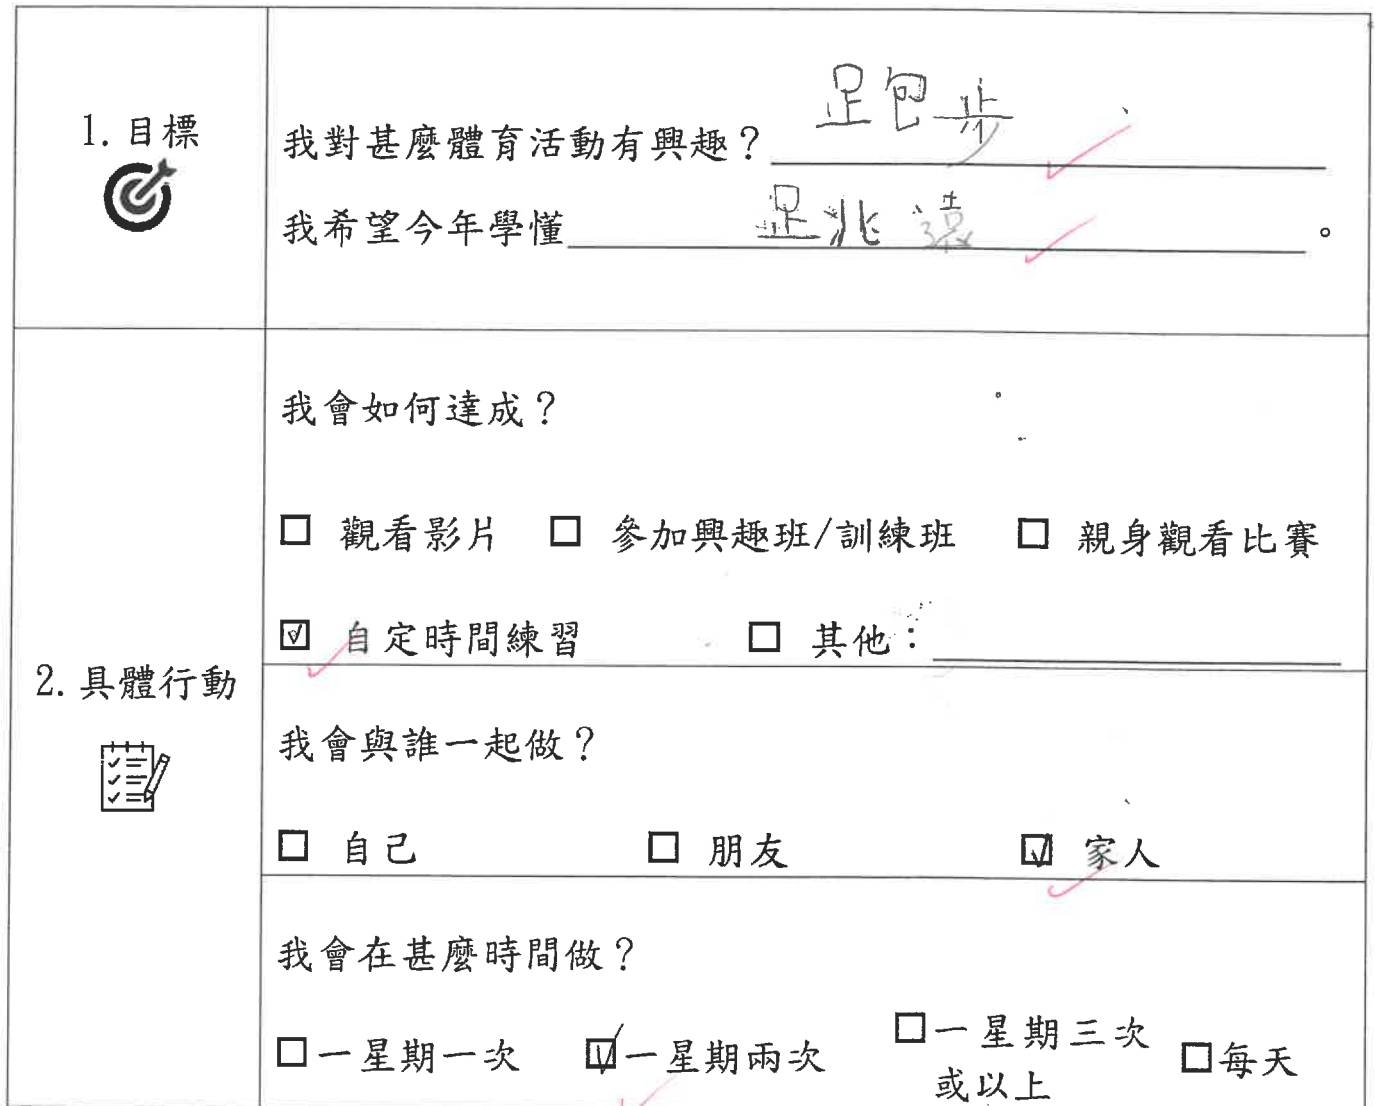 1. 目標
我對甚麼體育活動有興趣？跑步
我希望今年學懂跳遠。
2. 具體行動
我會如何達成？
☐ 觀看影片 ☐ 參加興趣班/訓練班 ☐ 親身觀看比賽
☑ 自定時間練習 ☐ 其他：
我會與誰一起做？
☐ 自己 ☐ 朋友 ☑ 家人
我會在甚麼時間做？
☐一星期一次 ☑一星期兩次 ☐一星期三次或以上 ☐每天